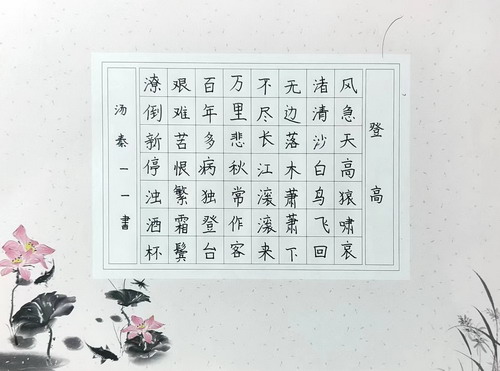 登高
风急天高猿啸哀
渚清沙白鸟飞回
无边落木萧萧下
不尽长江滚滚来
万里悲秋常作客
百年多病独登台
艰难苦恨繁霜鬓
潦倒新停浊酒杯
汤秦一一書